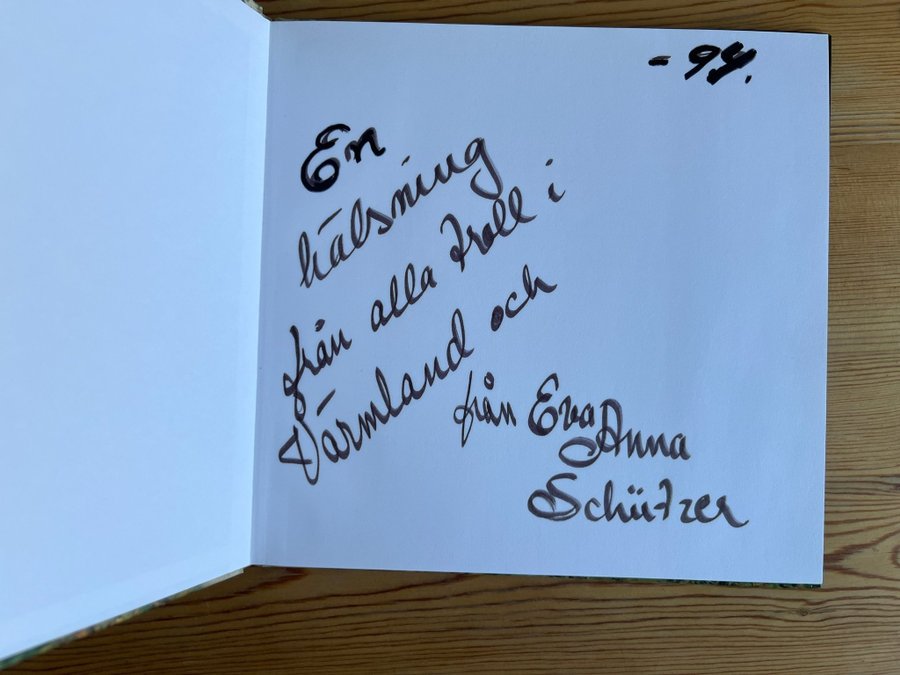 - 94.
En
hälsning
från alla troll i
Värmland och
från Eva
Anna
Schützer